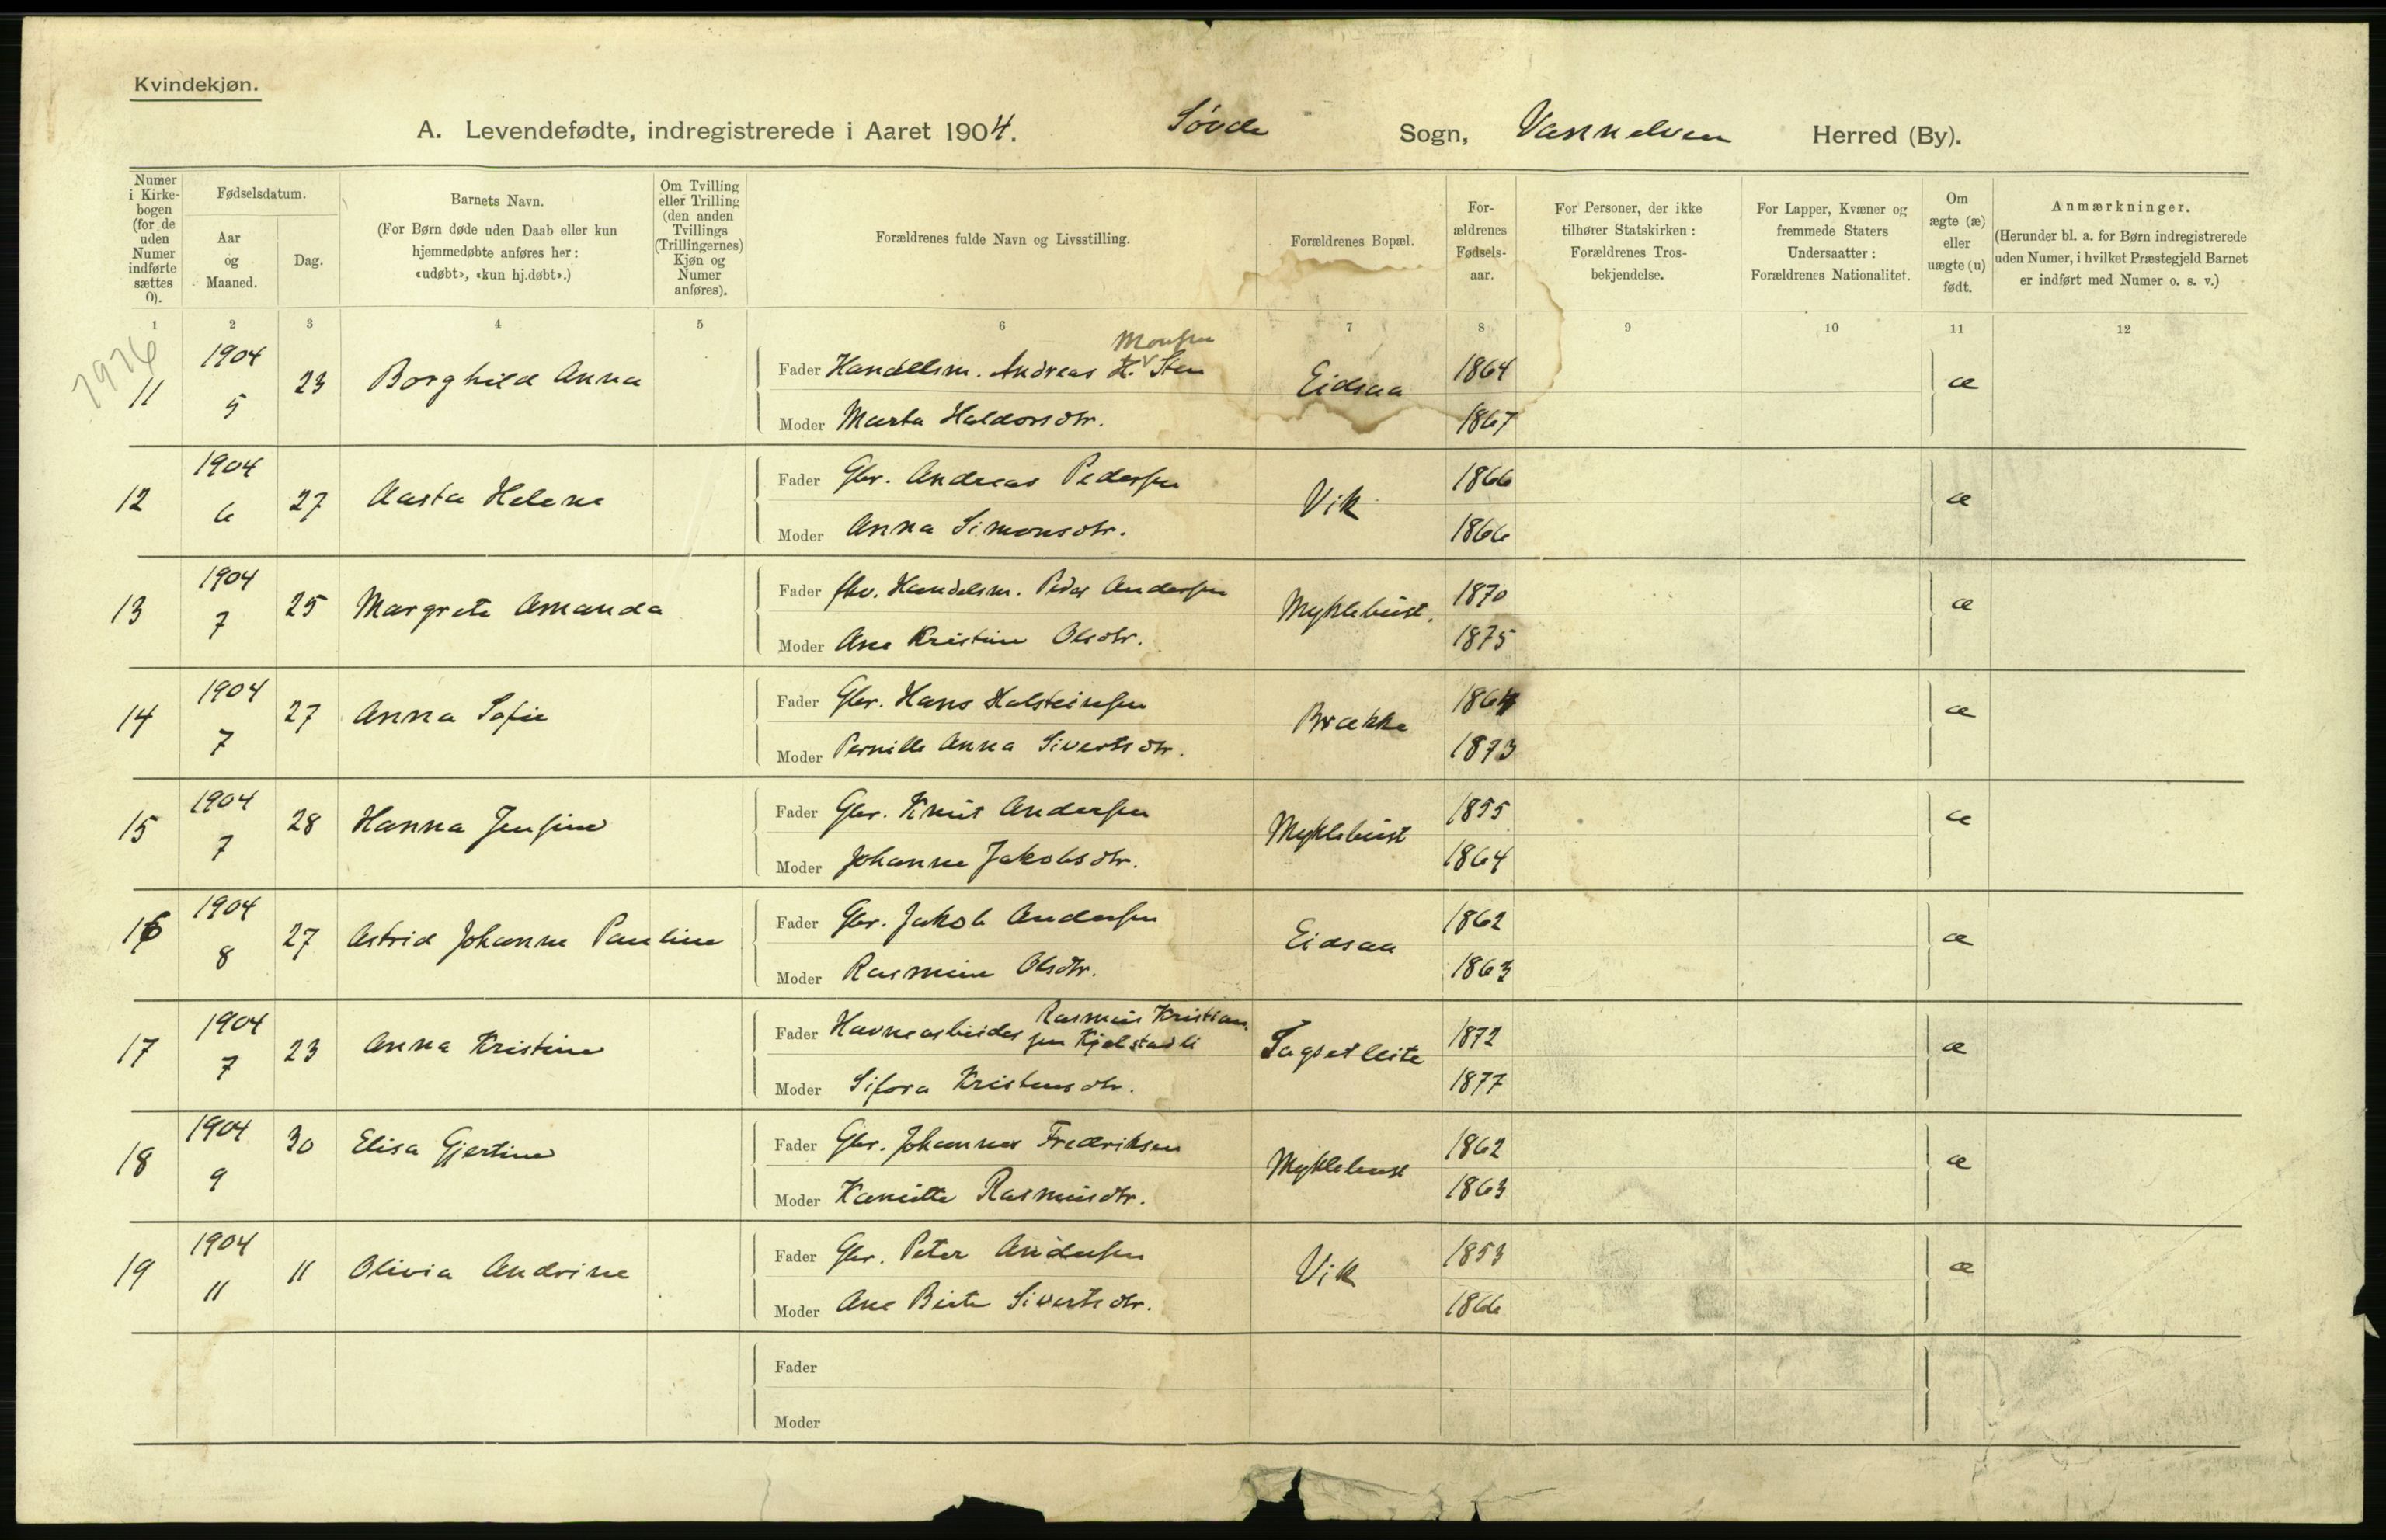 Kvindekjøn.
A. Levendefødte, indregistrerede i Aaret 1904. Søvde Sogn, Vannelven Herred (By).
Numer i Kirkebogen (for de uden Numer indførte sættes 0).
Fødselsdatum.
Aar og Maaned.
Dag.
Barnets Navn.
(For Børn døde uden Daab eller kun hjemmedøbte anføres her: «udøbt», «kun hj.døbt».)
Om Tvilling eller Trilling (den anden Tvillings (Trillingernes) Kjøn og Numer anføres).
Forældrenes fulde Navn og Livsstilling.
Forældrenes Bopæl.
Forældrenes Fødselsaar.
For Personer, der ikke tilhører Statskirken: Forældrenes Trosbekjendelse.
For Lapper, Kvæner og fremmede Staters Undersaatter: Forældrenes Nationalitet.
Om ægte (æ) eller uægte (u) født.
Anmærkninger.
(Herunder bl. a. for Børn indregistrerede uden Numer, i hvilket Præstegjeld Barnet er indført med Numer o. s. v.)
1 2 3 4 5 6 7 8 9 10 11 12
Monsen
11 1904 5 23 Borghild Anna Fader Handelsm. Andreas H. Sten Eidsaa 1864 æ
Moder Marta Haldorsdtr. 1867
12 1904 6 27 Aasta Helene Fader Gbr. Andreas Pedersen Vik 1866 æ
Moder Anna Simonsdtr. 1866
13 1904 7 25 Margrete Amanda Fader fhv. Handelsm. Peder Andersen Myklebust. 1870 æ
Moder Ane Kristine Olsdtr. 1875
14 1904 7 27 Anna Sofie Fader Gbr. Hans Holsteinsen Brække 1864 æ
Moder Pernille Anna Sivertsdtr. 1873
15 1904 7 28 Hanna Jensine Fader Gbr. Knut Andersen Myklebust 1855 æ
Moder Johanne Jakobsdtr. 1864
16 1904 8 27 Astrid Johanne Pauline Fader Gbr. Jakob Andersen Eidsaa 1862 æ
Moder Rasmine Olsdtr. 1863
17 1904 7 23 Anna Kristine Fader Havnearbeider Rasmus Kristiansen Kjelstadli 1872 æ
Moder Sifora Kristensdtr. 1877
18 1904 9 30 Elisa Gjertine Fader Gbr. Johannes Fredriksen Myklebust 1862 æ
Moder Rasmusdtr. 1863
19 1904 11 11 Olivia Andrine Fader Gbr. Peter Andersen Vik 1853 æ
Moder Ane Berte Sivertsdtr. 1866
Fader
Moder